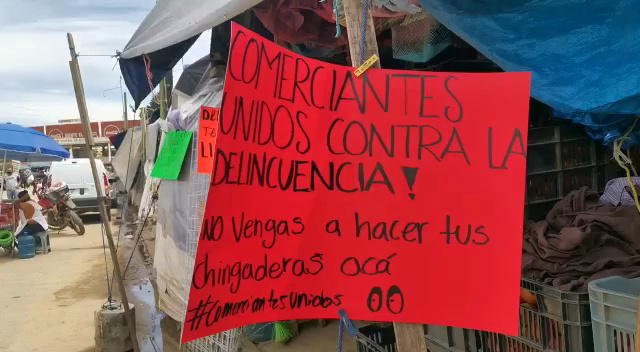 COMERCIANTES
UNIDOS CONTRA LA
DELINCUENCIA!
No Vengas a hacer tus
chingaderas acá
#Comerciantesunidos